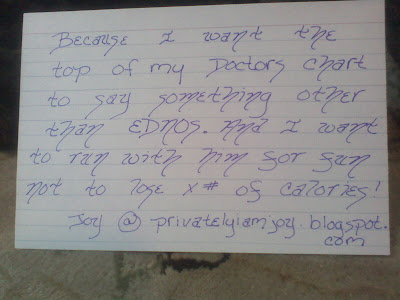 Because I want the
top of my Doctors chart
to say something other
than EDNOS. And I want
to run with him for fun
not to lose x # of calories!
Joy @ privatelyiamjoy.blogspot.
com